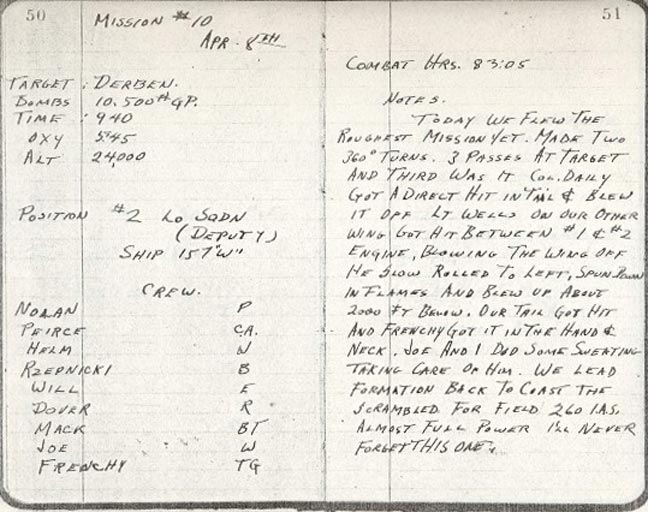 50
MISSION #10
APR. 8TH
TARGET: DERBEN.
BOMBS 10.500# GP.
TIME: 940
OXY 5:45
ALT 24,000
POSITION #2 LO SQDN
(DEPUTY)
SHIP 157 "W"
CREW.
NOLAN P
PEIRCE C.A.
HELM N
RZEPNICKI B
WILL E
DOVER R
MACK BT
JOE W
FRENCHY TG
51
COMBAT HRS. 83:05
NOTES.
TODAY WE FLEW THE
ROUGHEST MISSION YET. MADE TWO
360° TURNS. 3 PASSES AT TARGET
AND THIRD WAS IT COL. DAILY
GOT A DIRECT HIT IN TAIL & BLEW
IT OFF. LT WELLS ON OUR OTHER
WING GOT HIT BETWEEN #1 & #2
ENGINE, BLOWING THE WING OFF
HE SLOW ROLLED TO LEFT, SPUN DOWN
IN FLAMES AND BLEW UP ABOUT
2000 FT BELOW. OUR TAIL GOT HIT
AND FRENCHY GOT IT IN THE HAND &
NECK. JOE AND I DID SOME SWEATING
TAKING CARE OF HIM. WE LEAD
FORMATION BACK TO COAST THE
SCRAMBLED FOR FIELD 260 I.AS.
ALMOST FULL POWER I'LL NEVER
FORGET THIS ONE.